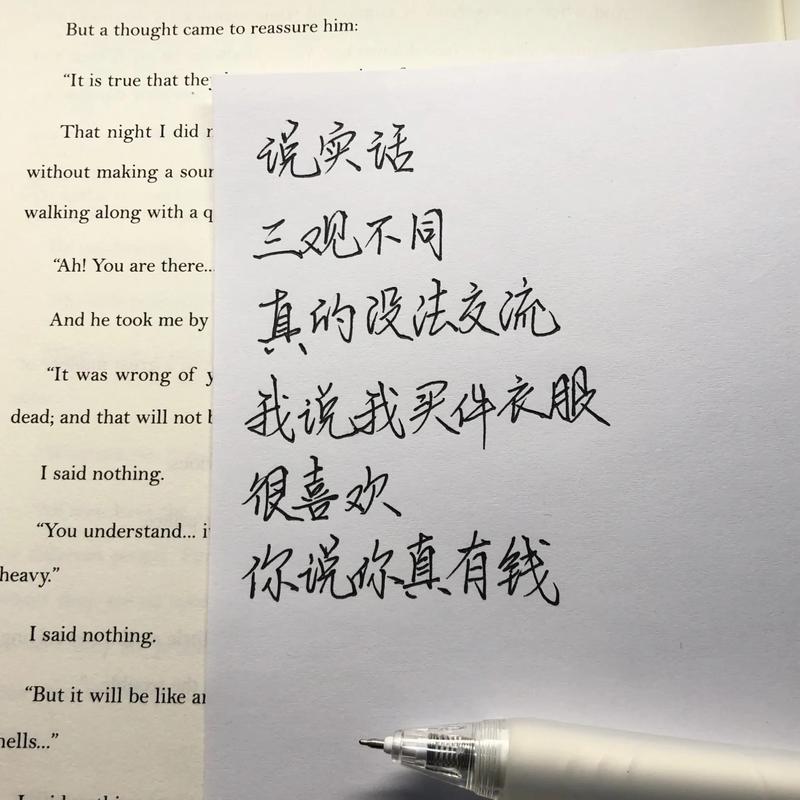 But a thought came to reassure him:
"It is true that they
That night I did
without making a
walking along with a
"Ah! You are there...
And he took me by
"It was wrong of
dead; and that will not
I said nothing.
"You understand...
heavy."
I said nothing.
"But it will be like
..."
说实话
三观不同
真的没法交流
我说我买件衣服
很喜欢
你说你真有钱